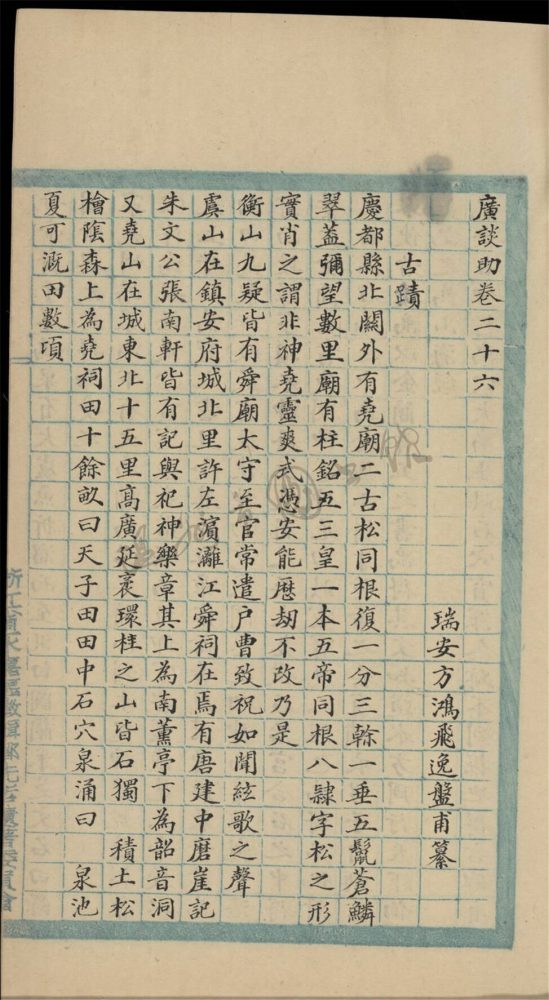 廣談助卷二十六
瑞安方鴻飛逸盤甫纂
古蹟
慶都縣北關外有堯廟二古松同根復一分三榦一垂五鬣蒼鱗
翠蓋彌望數里廟有柱銘五三皇一本五帝同根八隸字松之形
實肖之謂非神堯靈爽式憑安能歷劫不改乃是
衡山九疑皆有舜廟太守至官常遣户曹致祝如聞絃歌之聲
虞山在鎮安府城北里許左濱灕江舜祠在焉有唐建中磨崖記
朱文公張南軒皆有記與祀神樂章其上為南薰亭下為韶音洞
又堯山在城東北十五里高廣延袤環桂之山皆石獨 積土松
檜蔭森上為堯祠田十餘畝曰天子田田中石穴泉涌曰 泉池
夏可溉田數項